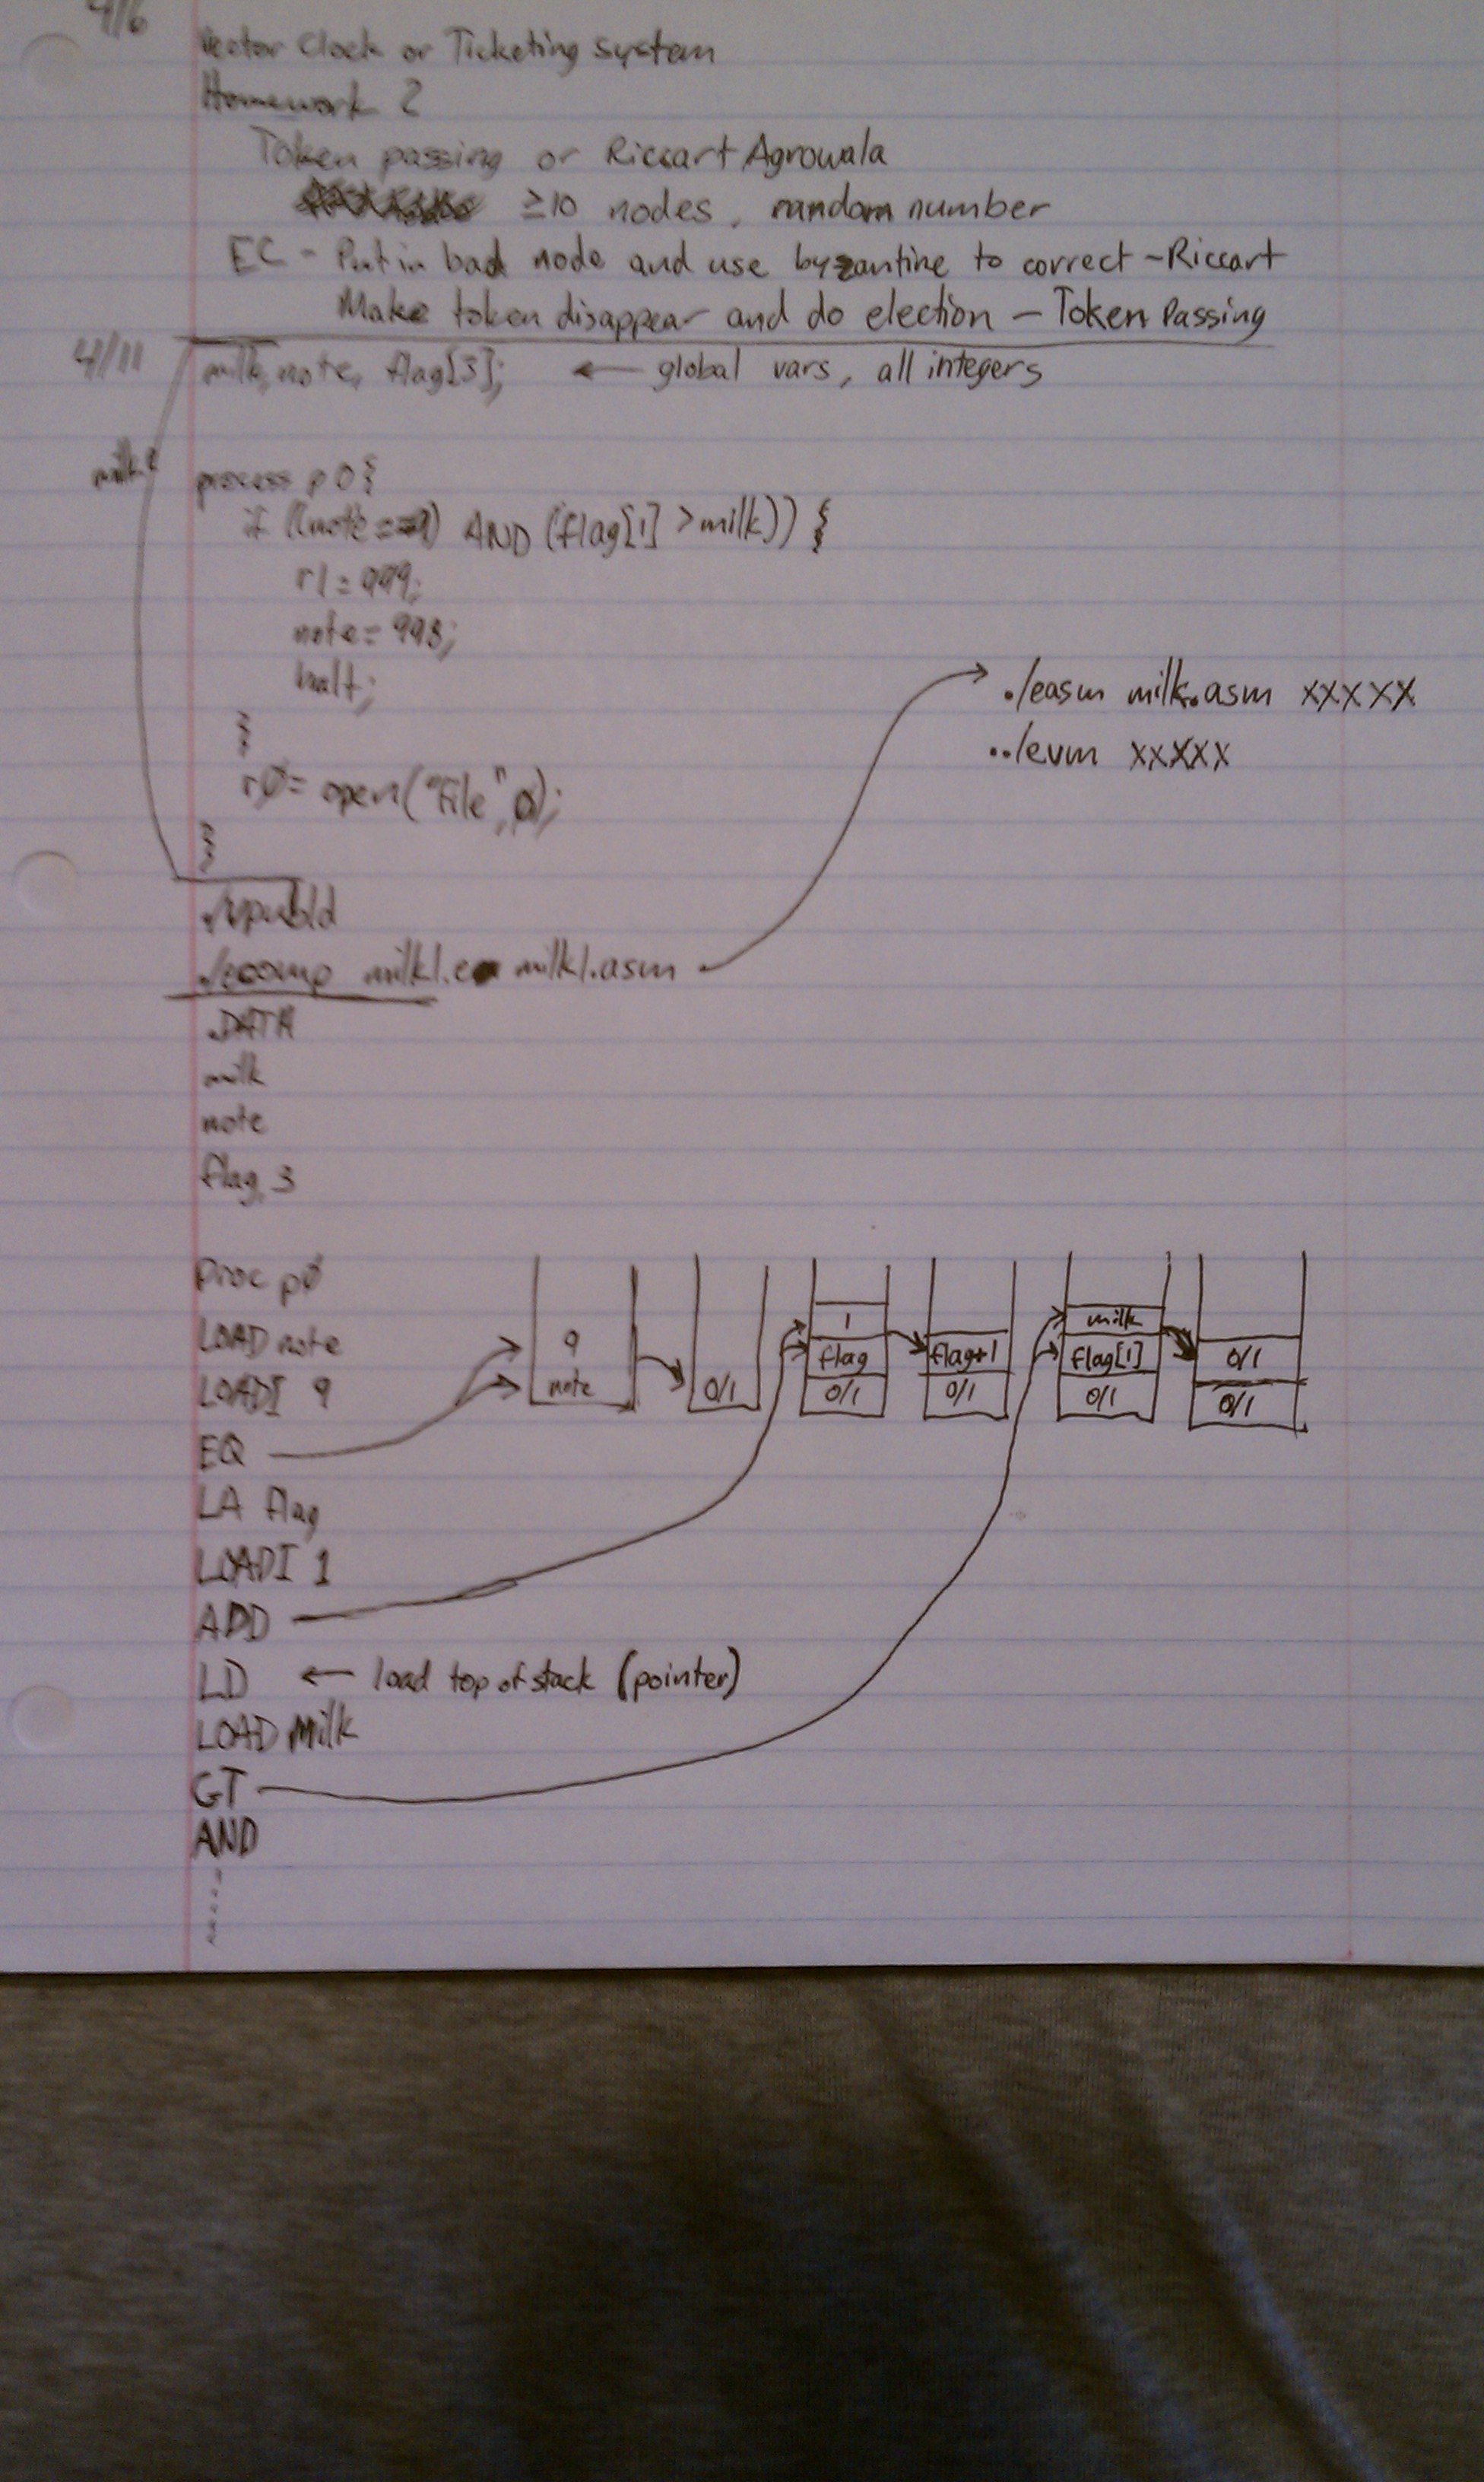 4/6
Vector Clock or Ticketing system
Homework 2
Token passing or Riccart Agrowala
≥10 nodes, random number
EC - Put in bad node and use byzantine to correct - Riccart
Make token disappear and do election - Token Passing
4/11
milk, note, flag[3]; ← global vars, all integers
milk
process p0{
if ((note == 9) AND (flag[1] > milk)) {
r1 = 999;
note = 998;
halt;
}
r0 = open("file", 0);
}
./easm milk.asm xxxxx
../evm xxxxx
./ecomp milk1.e milk1.asm
.DATA
milk
note
flag, 3
Proc p0
LOAD note
LOADI 9
EQ
LA flag
LOADI 1
ADD
LD ← load top of stack (pointer)
LOAD Milk
GT
AND
9
note
0/1
1
flag
0/1
flag+1
0/1
milk
flag[1]
0/1
0/1
0/1